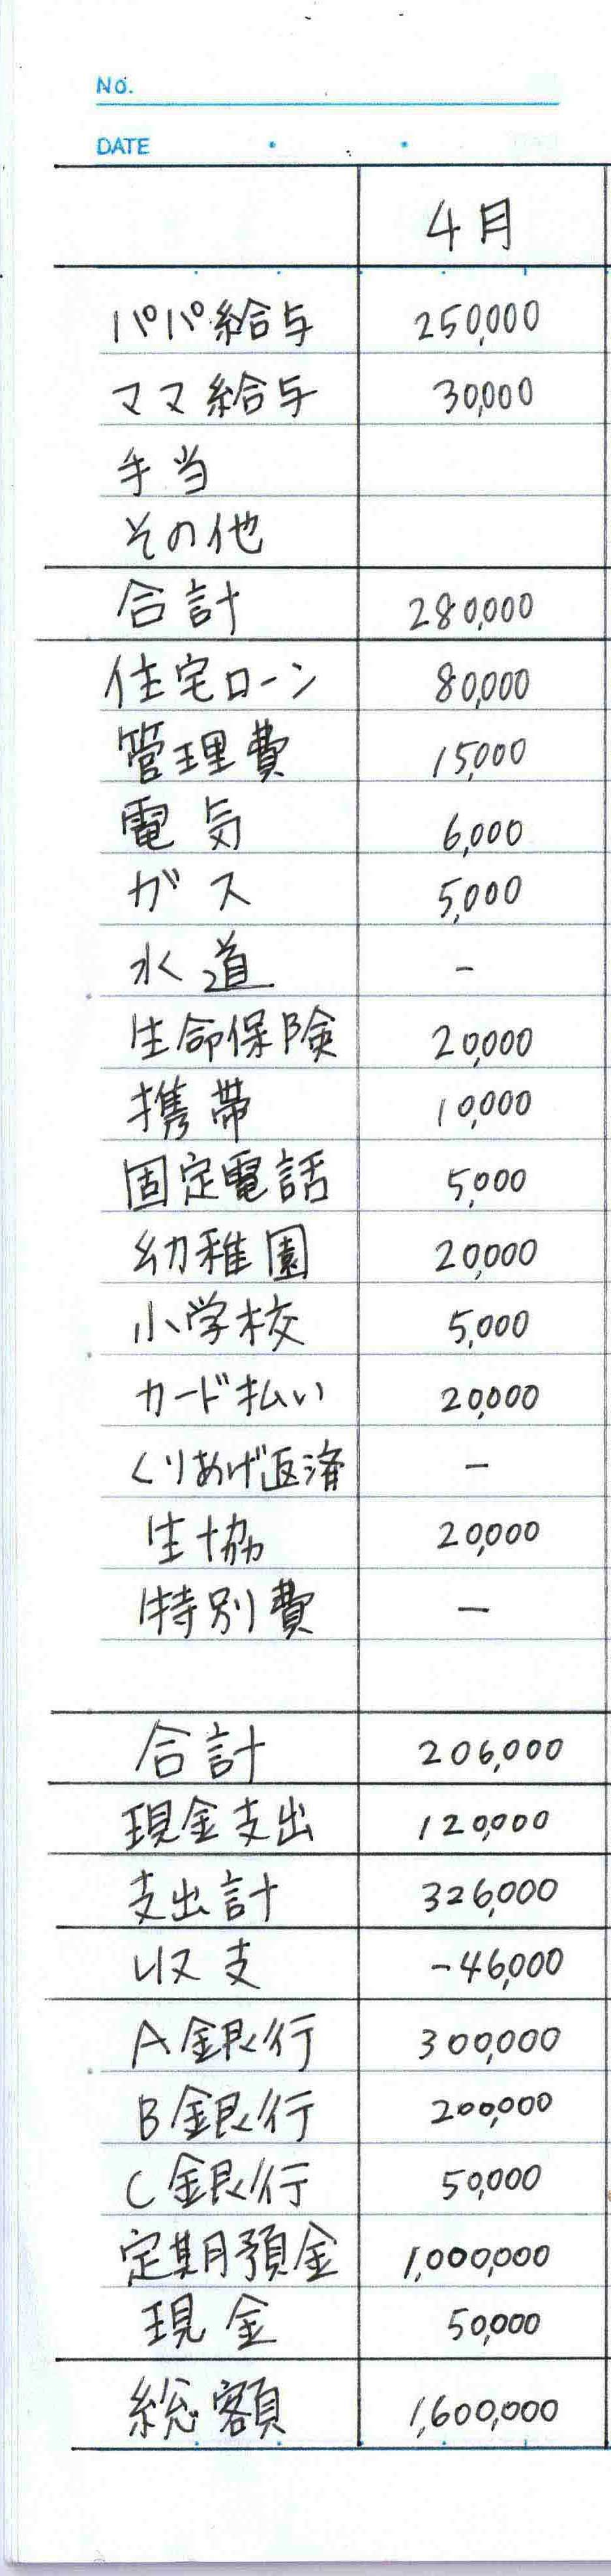 No.
DATE
4月
パパ給与 250,000
ママ給与 30,000
手当
その他
合計 280,000
住宅ローン 80,000
管理費 15,000
電気 6,000
ガス 5,000
水道 -
生命保険 20,000
携帯 10,000
固定電話 5,000
幼稚園 20,000
小学校 5,000
カード払い 20,000
くりあげ返済 -
生協 20,000
特別費 -
合計 206,000
現金支出 120,000
支出計 326,000
収支 -46,000
A銀行 300,000
B銀行 200,000
C銀行 50,000
定期預金 1,000,000
現金 50,000
総額 1,600,000